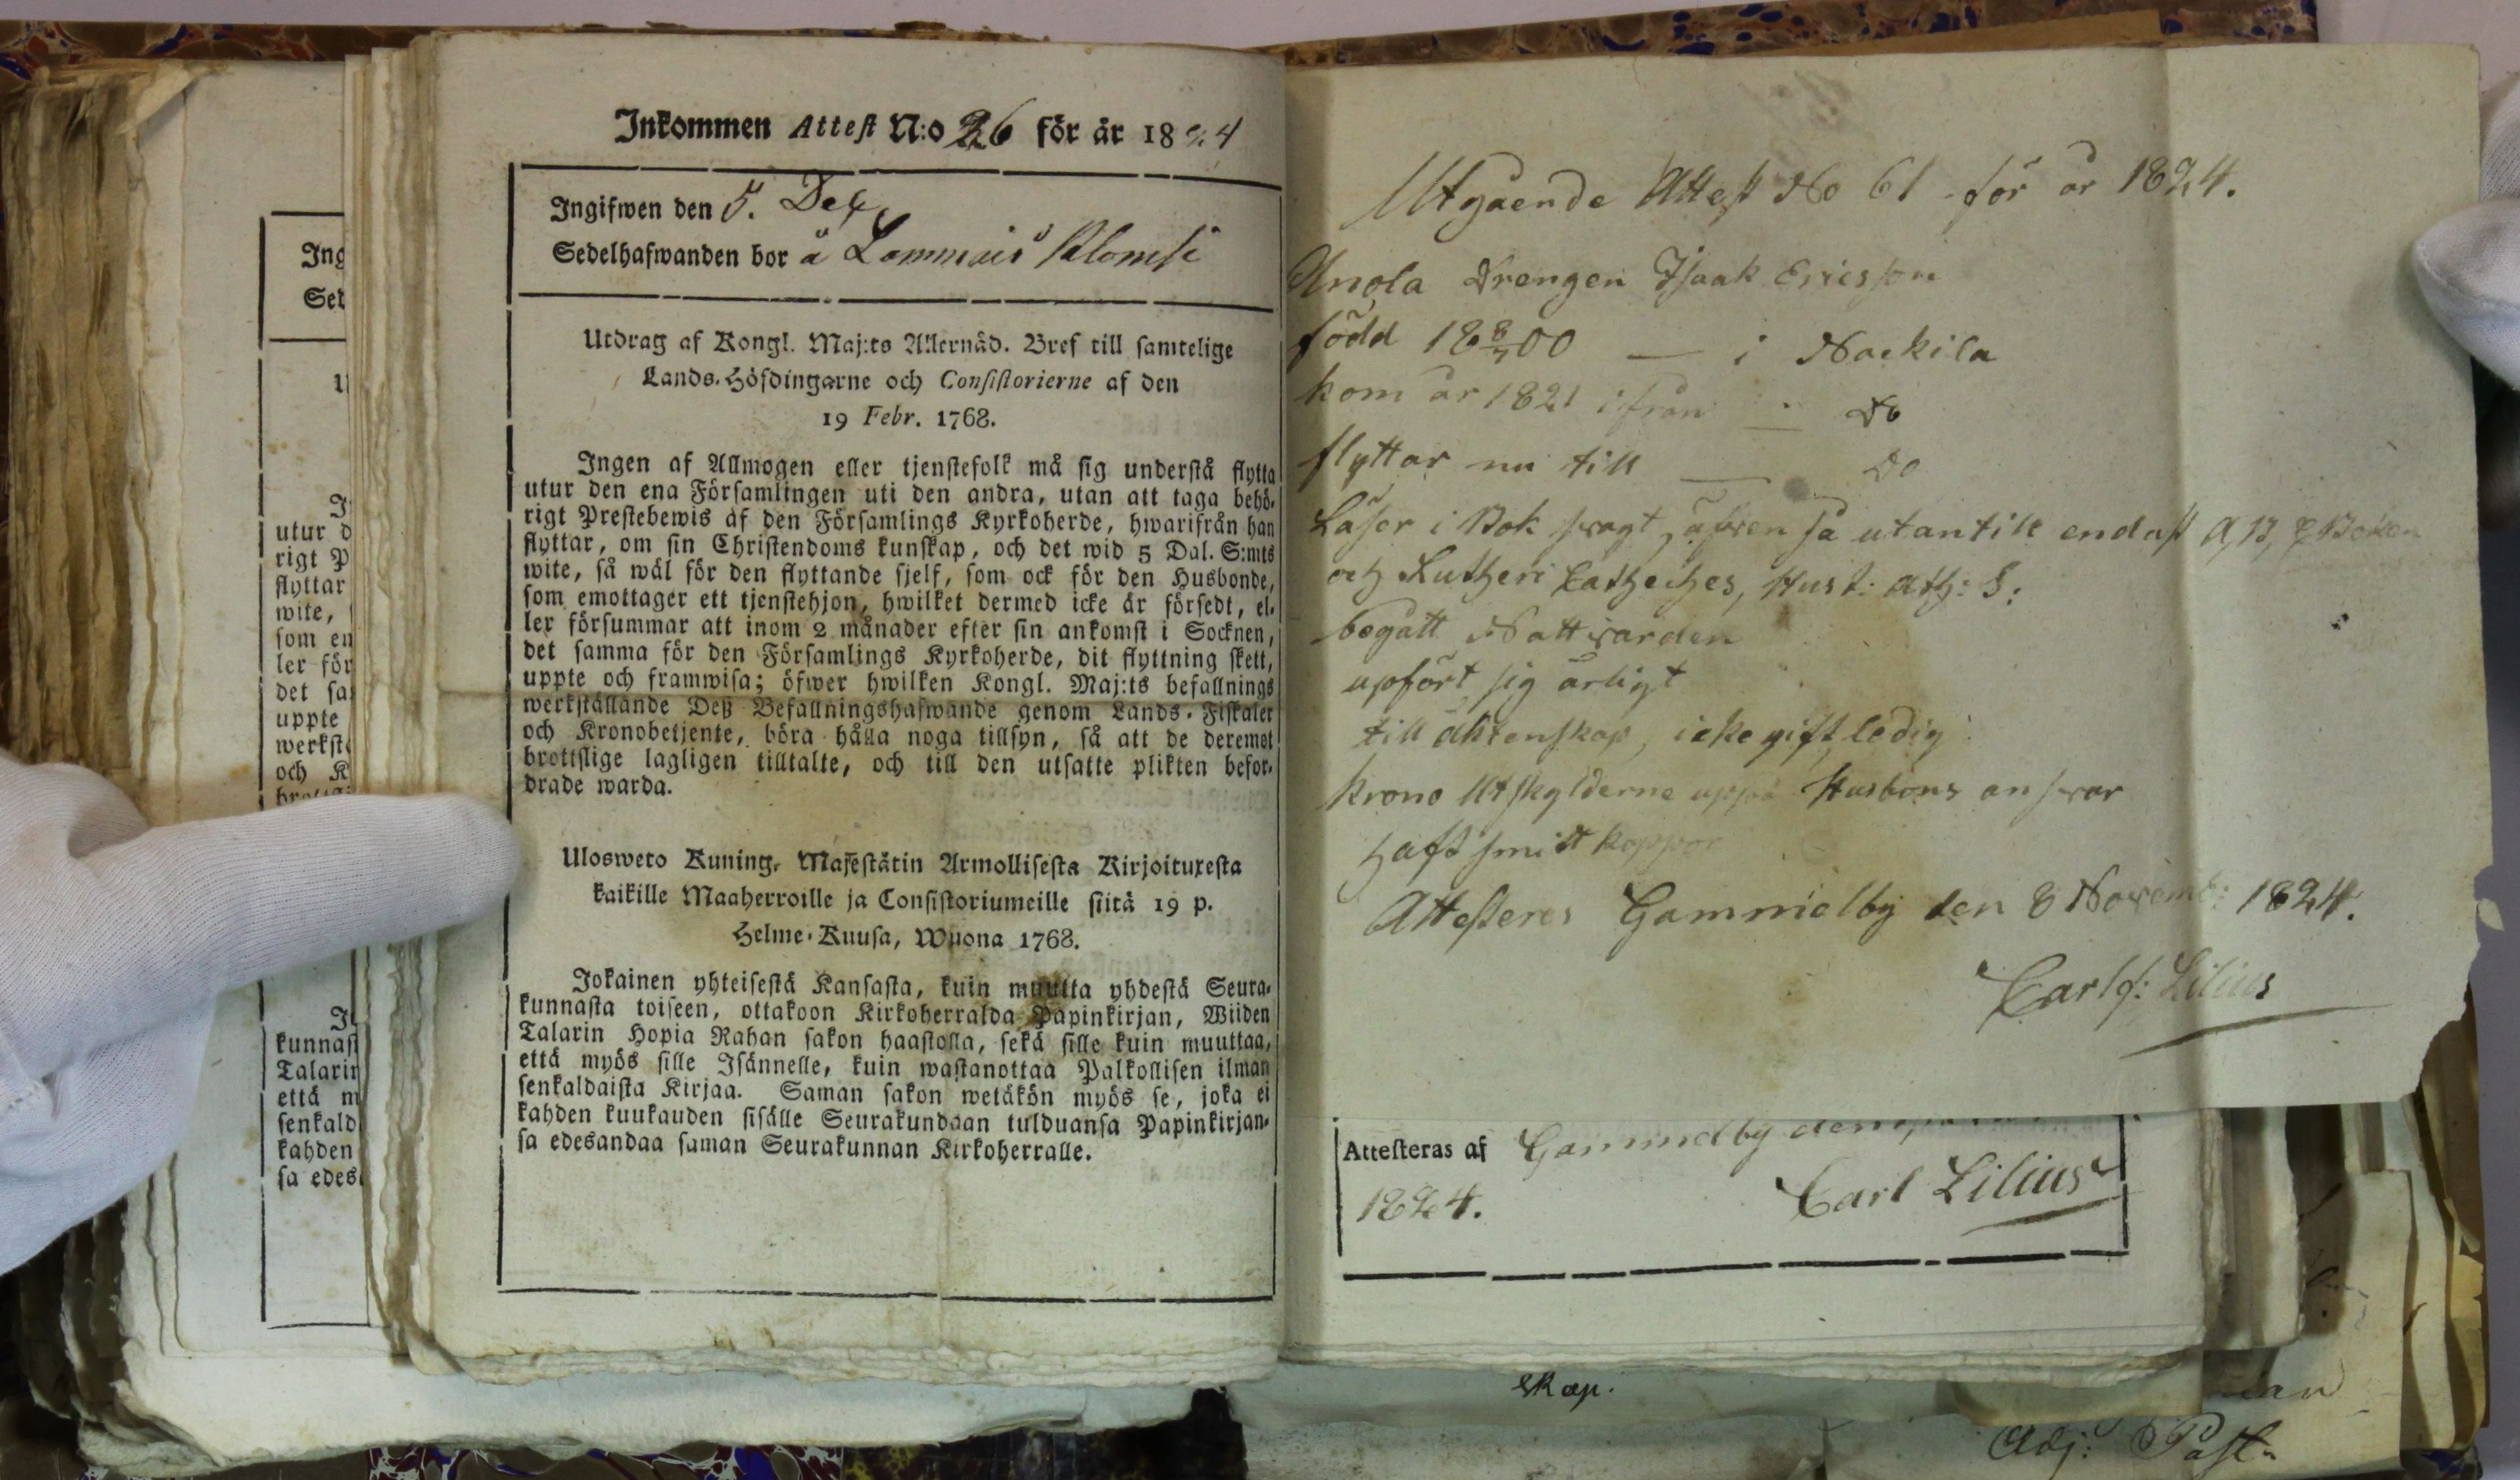 Inkommen Attest N:o 26 för år 1824
Ingifwen den 5. Dec
Sedelhafwanden bor å Lammais Klomsi
Utdrag af Kongl. Maj:ts Allernåd. Bref till samtelige
Lands-Höfdingarne och Consistorierne af den
19 Febr. 1768.
Ingen af Allmogen eller tjenstefolk må sig understå flytta
utur den ena Församlingen uti den andra, utan att taga behö-
rigt Prestebewis af den Församlings Kyrkoherde, hwarifrån han
flyttar, om sin Christendoms kunskap, och det wid 5 Dal. S:mts
wite, så wäl för den flyttande sjelf, som ock för den Husbonde,
som emottager ett tjenstehjon, hwilket dermed icke är försedt, el-
ler försummar att inom 2 månader efter sin ankomst i Socknen,
det samma för den Församlings Kyrkoherde, dit flyttning skett,
uppte och framwisa; öfwer hwilken Kongl. Maj:ts befallnings
werkställande Deß Befallningshafwande genom Lands-Fiskaler
och Kronobetjente, böra hålla noga tillsyn, så att de deremot
brottslige lagligen tilltalte, och till den utsatte plikten befor-
drade warda.
Ulosweto Kuning. Majestätin Armollisesta Kirjoituxesta
kaikille Maaherroille ja Consistoriumeille siitä 19 p.
Helme-Kuusa, Wuona 1768.
Jokainen yhteisestä Kansasta, kuin muutta yhdestä Seura-
kunnasta toiseen, ottakoon Kirkoherralda Papinkirjan, Wiiden
Talarin Hopia Rahan sakon haastolla, sekä sille kuin muuttaa,
että myös sille Isännelle, kuin wastanottaa Palkollisen ilman
senkaldaista Kirjaa. Saman sakon wetäkön myös se, joka ei
kahden kuukauden sisälle Seurakundaan tulduansa Papinkirjan-
sa edesandaa saman Seurakunnan Kirkoherralle.
Ing
Sed
utur d
rigt P
flyttar
wite,
som en
ler för
det sa
uppte
werkst
och K
kunnast
Talarin
että m
senkald
kahden
sa edes
Utgående Attest No 61 för år 1824.
Unga Drengen Isaak Ericsson
född 18 8/7 00 — i Nackila
kom år 1821 ifrån Do
flyttar nu till Do
Läser i Bok swagt, äfwen så utantill endast A, B, C Boken
och Lutheri Catheches, Hust: Ath: S:
begått Nattwarden
upfört sig ärligt
till äktenskap, icke gift, ledig
Krono Utskylderne uppå Husbons answar
haft smittkoppor
Attesteres Gammelby den 8 Novemb: 1824.
Carl J: Lilius
Attesteras af Gammelby den
1824. Carl Lilius
skap.
Adj: Past.